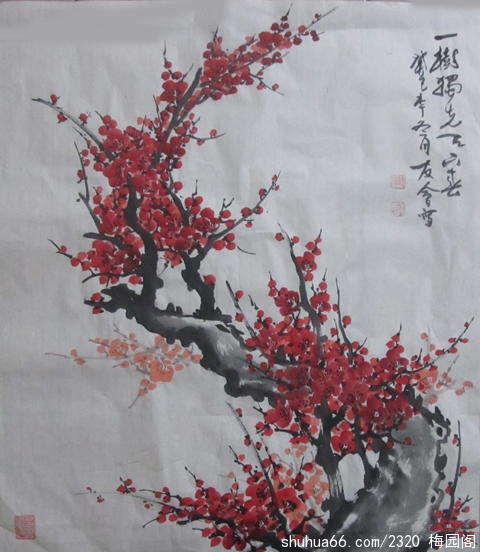 一樹獨先天下春
癸巳年冬月友會寫
shuhua66.com/2320 梅园阁